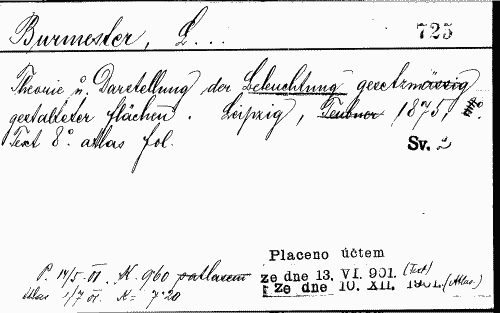 Burmester, L...
725
Theorie u. Darstellung der Beleuchtung gesetzmässig
gestalteter flächen. Leipzig, Teubner 1875,
Text 8° atlas fol.
Sv. 2
Placeno účtem
P. 14/5 - 01. K. 9·60 ze dne 13. VI. 901. (Text)
Atlas 1/7 01. K= 7·20 ze dne 10. XII. 1901. (Atlas.)